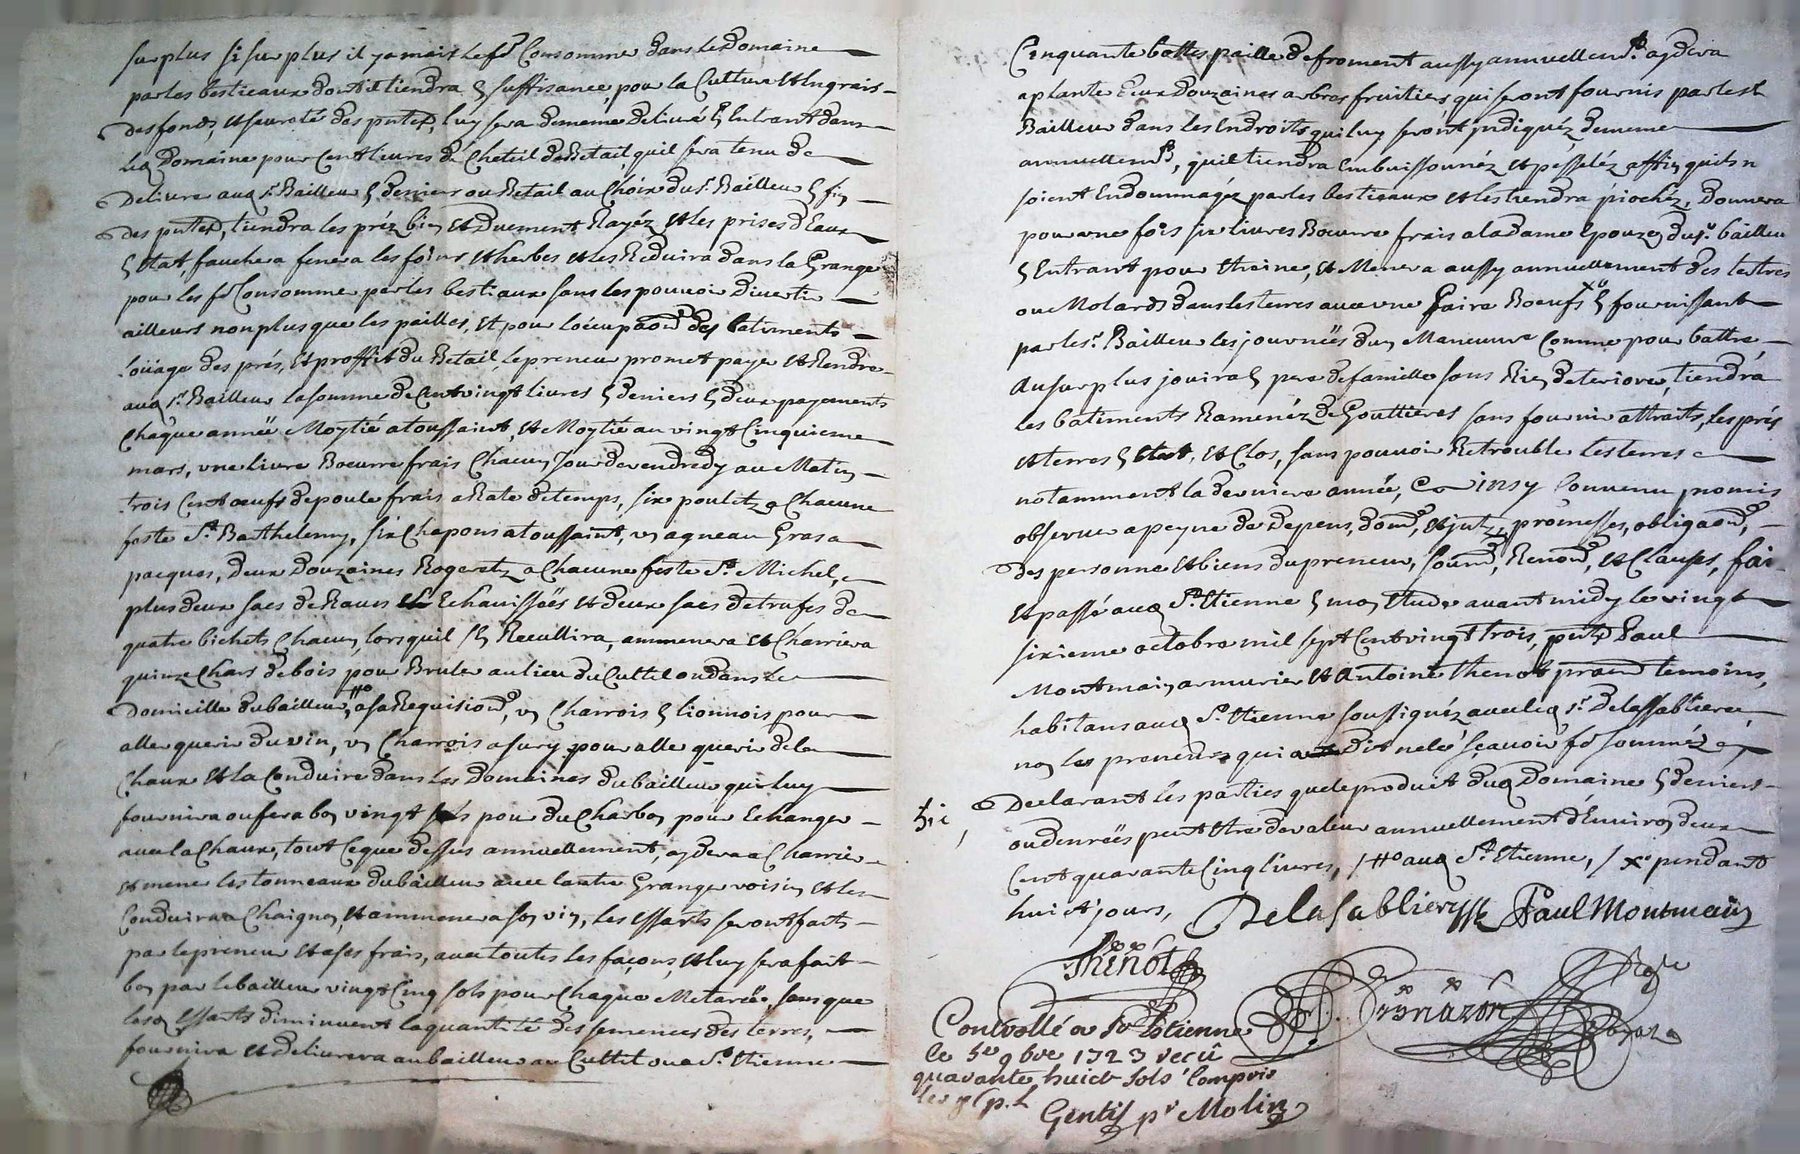 surplus si surplus il y a mais le fe Consommer dans le Domaine
par les bestieaux dont il tiendra a suffisance, pour la Culture et Engrais
des fonds, et seureté des putes, luy sera de meme delivré En Entrant dans
led domaine pour Cent livres de Cheteil de Betail quil sera tenu de
Delivrer aud sr Bailleur En deniers ou Betail au Choix du sr Bailleur En fin
des putes, tiendra les préz bien et Duement Rayéz et les prises d'Eaux
En Etat, fauchera fenera les foins et herbes et les Reduira dans la Grange
pour les fe Consommer par les bestiaux sans les pouvoir divertir
ailleurs non plus que les pailles, Et pour loccupaon des batiments
loüage des prés, Et proffit du Betail, le preneur promet payer et Rendre
aud sr Bailleur la somme de Cent vingt livres En deniers En deux payements
Chaque année Moytié a toussaint, et Moytié au vingt Cinquieme
mars, une livre Boeurre frais Chacun Jour de vendredy au Matin
trois Cent oeufs de poule frais a Rate de temps, six poulets a Chacune
feste St Barthelemy, six Chapons a toussaint, un agneau Gras a
pacques, deux Douzaines Rogerets a Chacune feste St Michel,
plus deux sacs de Raves et deux sacs de trufes de
quatre bichets Chacun, lorsquil En Recullira, ammenera et Charriera
quinze Chars de bois pour Bruler au lieu du Cultil ou dans le
Domicille du bailleur, a sa Requision, un Charrois En lionnois pour
aller querir du vin, un Charrois a sury pour aller querir de la
Chaux et la Conduire dans les Domaines du bailleur qui luy
fournira ou fera bon vingt sols pour du Charbon pour Echanger
avec la Chaux, tout Ce que dessus annuellement, aydera a Charrier
et mener les tonneaux du bailleur avec lautre Granger voisin et les
Conduira a Chaignon, et ammenera son vin, les Essarts seront faits
par le preneur et a ses frais, avec toutes les façons, et luy sera fait
bon par le bailleur vingt Cinq sols pour Chaque Metarée, sans que
lesd Essarts diminuent la quantité des semences des terres,
fournira et delivrera au bailleur au Cultil ou a St Etienne
Cinquante bottes paille de froment aussy annuellemt. aydera
a planter deux Douzaines arbres fruitiers qui seront fournis par led sr
Bailleur dans les Endroits qui luy seront indiquéz de meme
annuellemt, quil tiendra Embuissonnéz et pesseléz affin quils n
soient Endommagéz par les bestieaux et les tiendra piochéz, Donnera
pour une fois six livres Boeurre frais a la dame Epouze du sr bailleur
En Entrant pour Etreine, et Menera aussy annuellement des tertres
ou Molards dans les terres avec une paire Boeufs En fournissant
par le sr Bailleur les journées dun Maneuvre Comme pour battre
Au surplus jouira En pere de famille sans Rien deteriorer, tiendra
les batiments Ramenéz de Gouttieres sans fournir attraits, les prés
et terres En Etat, et Clos, sans pouvoir Retroubler les terres
notamment la derniere année, Ce Convenu promis
observer a peyne de depens, dom, et jnts, promesses, obligaon,
des personne et biens du preneur, soum, Renon, et Clauses, fai
Et passé aud St Etienne En mon Etude avant midy le vingt
sixieme octobre mil sept Cent vingt trois, pnts Paul
Montmain armurier et Antoine thenot pratn temoins,
habitans aud St Etienne soussignéz avec led sr Delassabliere,
non le preneur qui a dit ne le sçavoir fe sommé
Declarant les parties que le produit dud Domaine En deniers
ou denrées peut Etre de valeur annuellement d'Environ deux
Cent quarante Cinq livres, / # aud St Etienne, / X pendant
huict jours,
Delasablieryss Paul Montmain
Thenot
Controllé a St Etienne
le 5e 9bre 1723 reçu
quarante huict sols Compris
les
Gentil pr Molin